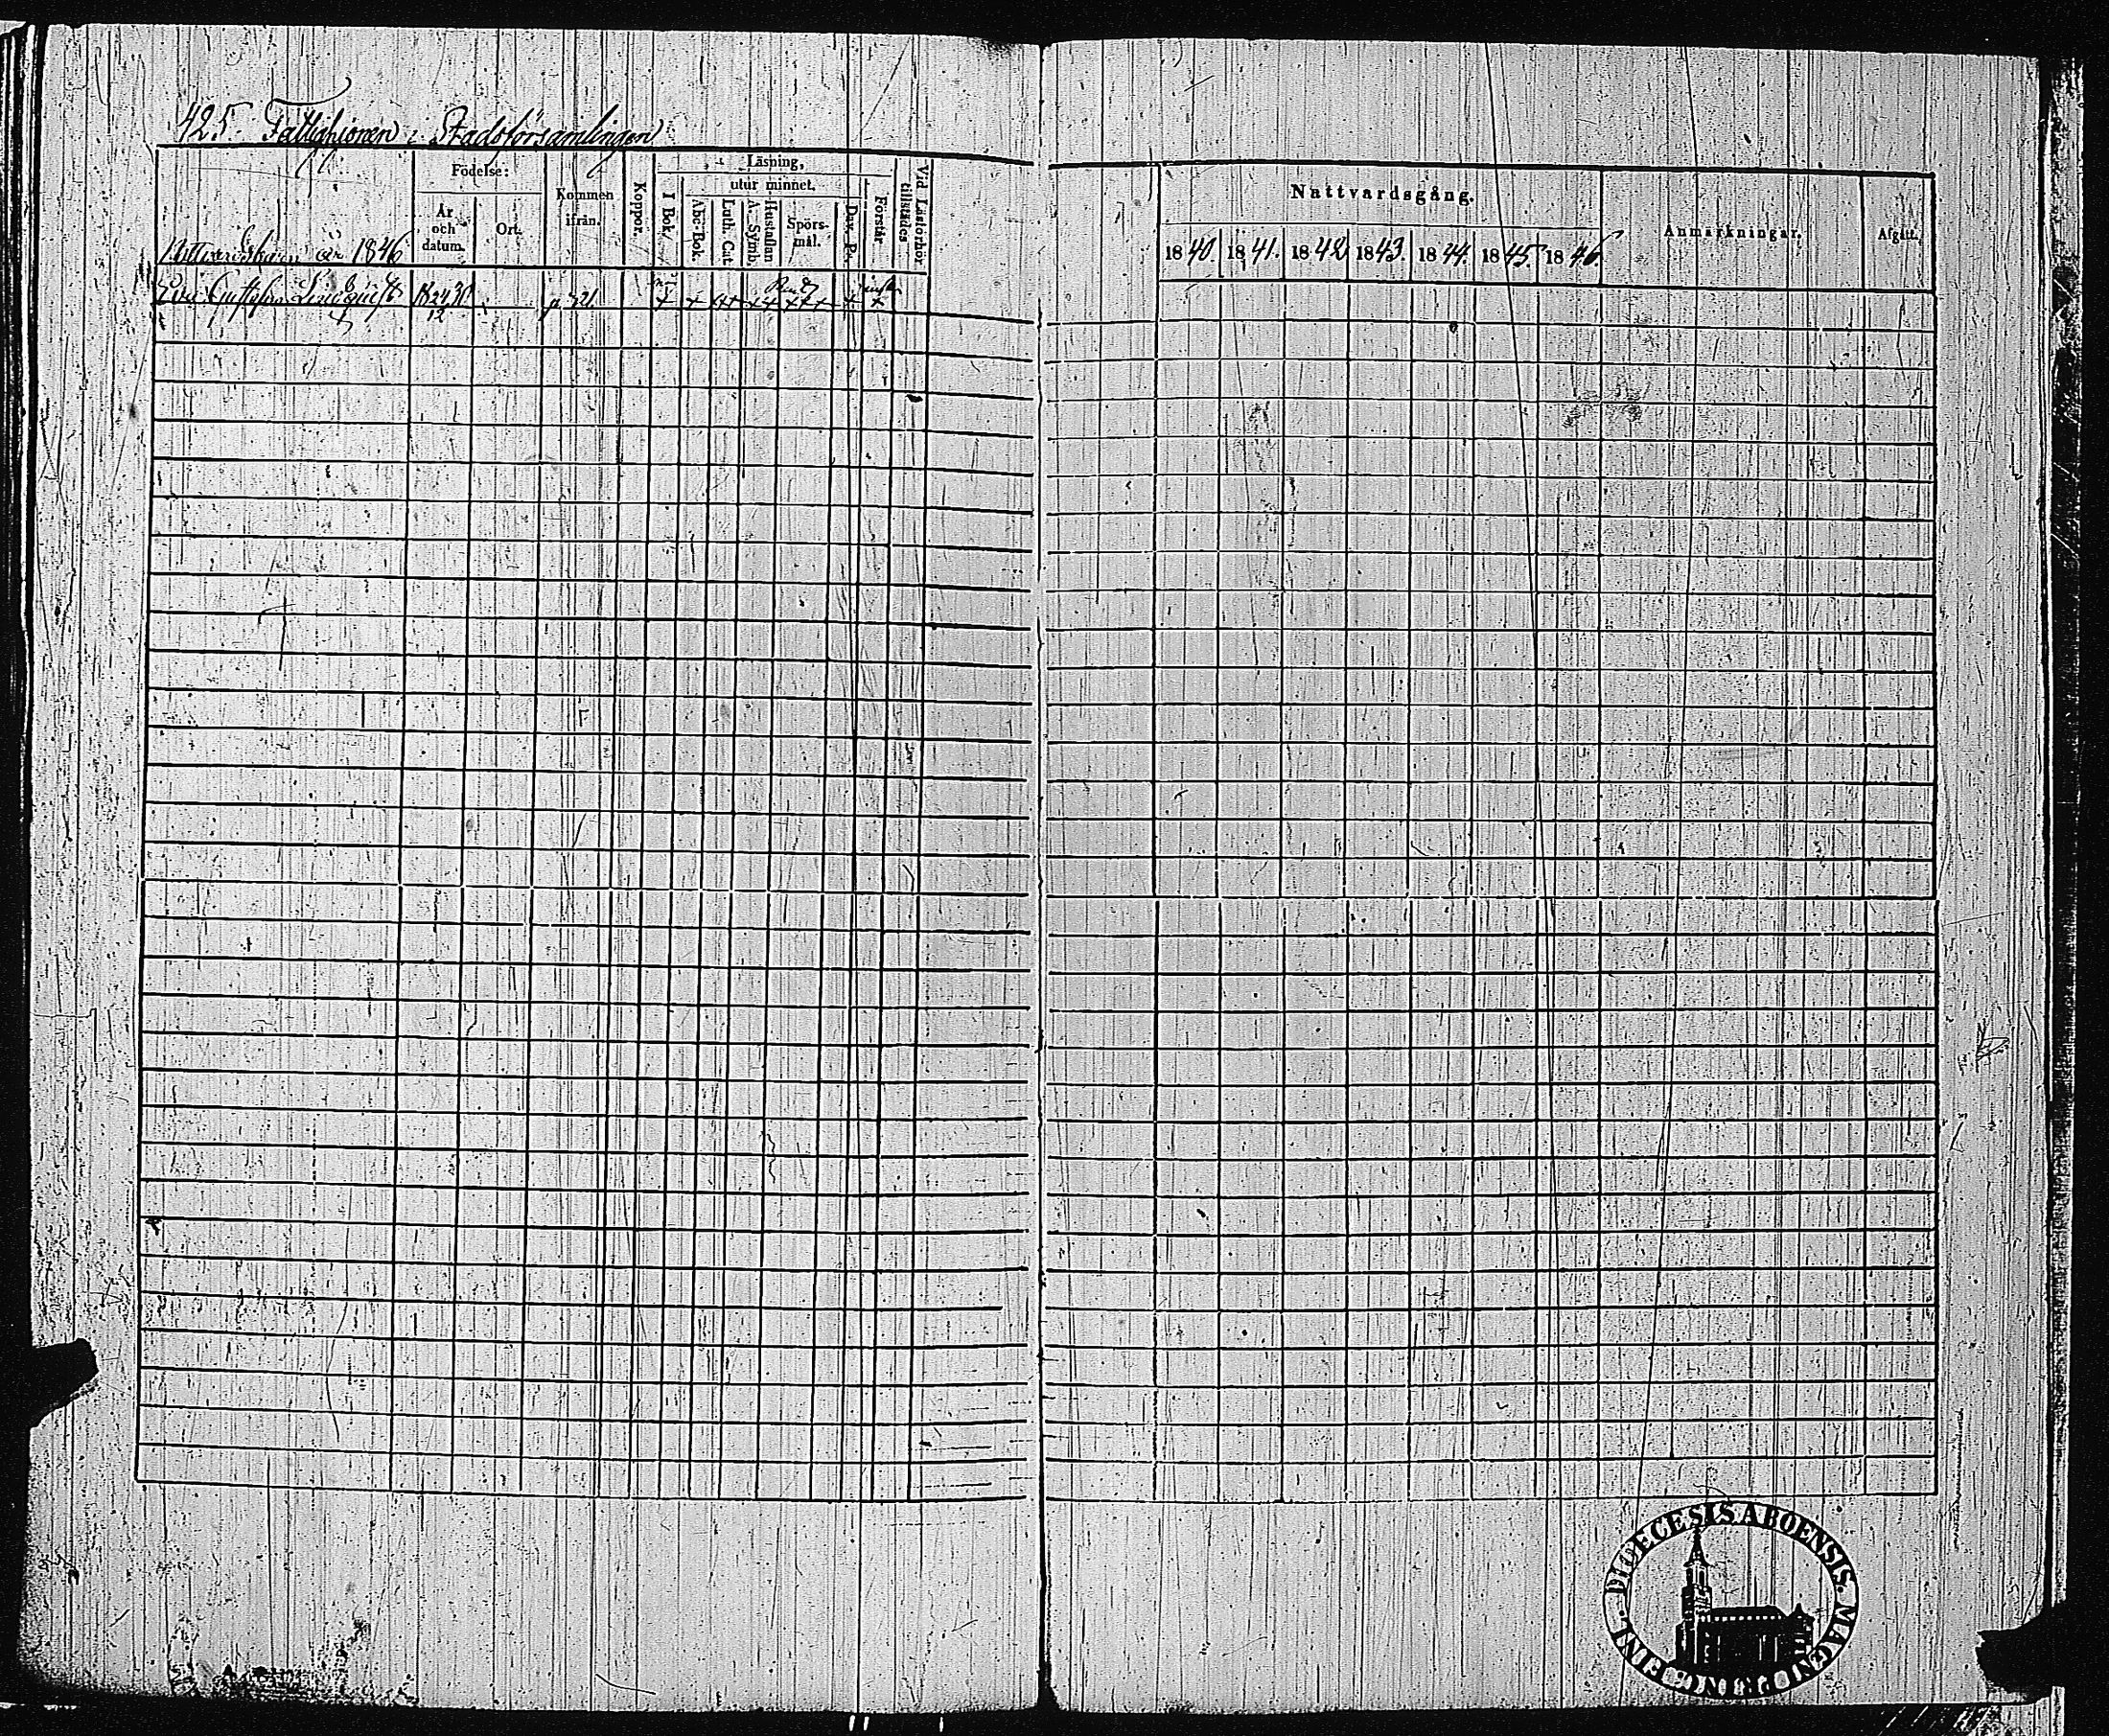 425. Fattighjonen i Stadsförsamlingen
Födelse:
År och datum.
Ort.
Kommen ifrån.
Koppor.
Läsning,
I Bok.
utur minnet.
Abc-Bok.
Luth. Cat.
Hustaflan A. Symb.
Spörsmål.
Dav. Ps.
Förstår
Vid Läsförhör tillstädes
Nattvardsbarn år 1846
Nattvardsgång.
1840. 1841. 1842 1843. 1844. 1845 1846.
Anmärkningar.
Afgått.
Eva Gustafva Lindqvist 24/12 30 p 321
DIOECESIS ABOENSIS. MAGNI PRINC. FINL.